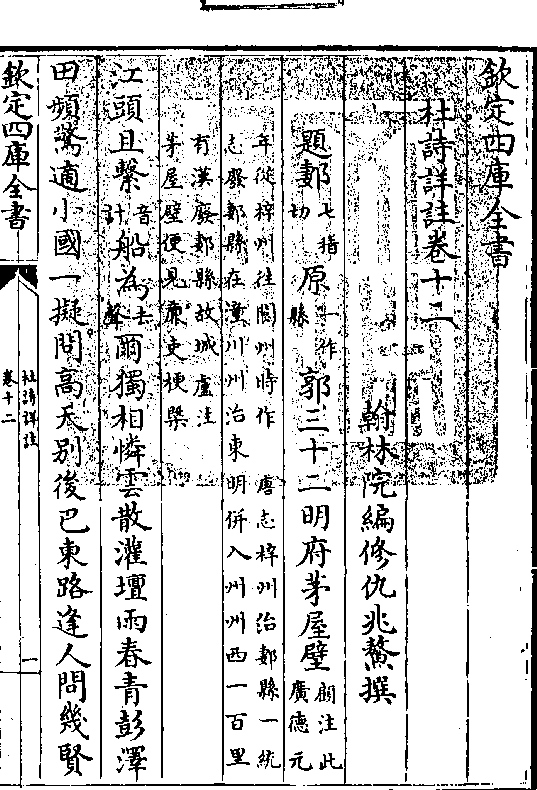 欽定四庫全書
杜詩詳註卷十二
翰林院編修仇兆鰲撰
題郪七指切原一作縣郭三十二明府茅屋壁顧注此廣德元
年從梓州往閬州時作 唐志梓州治郪縣一統
志廢郪縣在潼川州治東明併入州州西一百里
有漢廢郪縣故城盧注
茅屋壁便見廉吏梗槩
江頭且繫音計船為去聲爾獨相憐雲散灌壇雨春青彭澤
田頻驚適小國一擬問高天別後巴東路逢人問幾賢
欽定四庫全書
杜詩詳註
卷十二
一